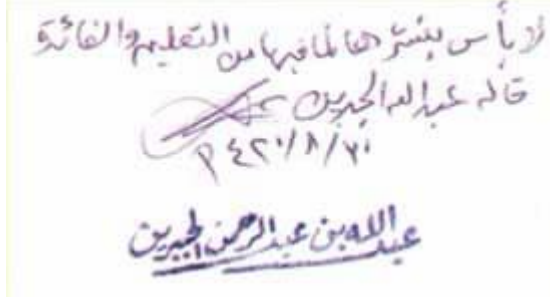 لا بأس بنشرها لما فيها من التعليم والفائدة
قاله عبد الله الجبرين
١٤٢٠/٨/٣٠
عبد الله بن عبد الرحمن الجبرين